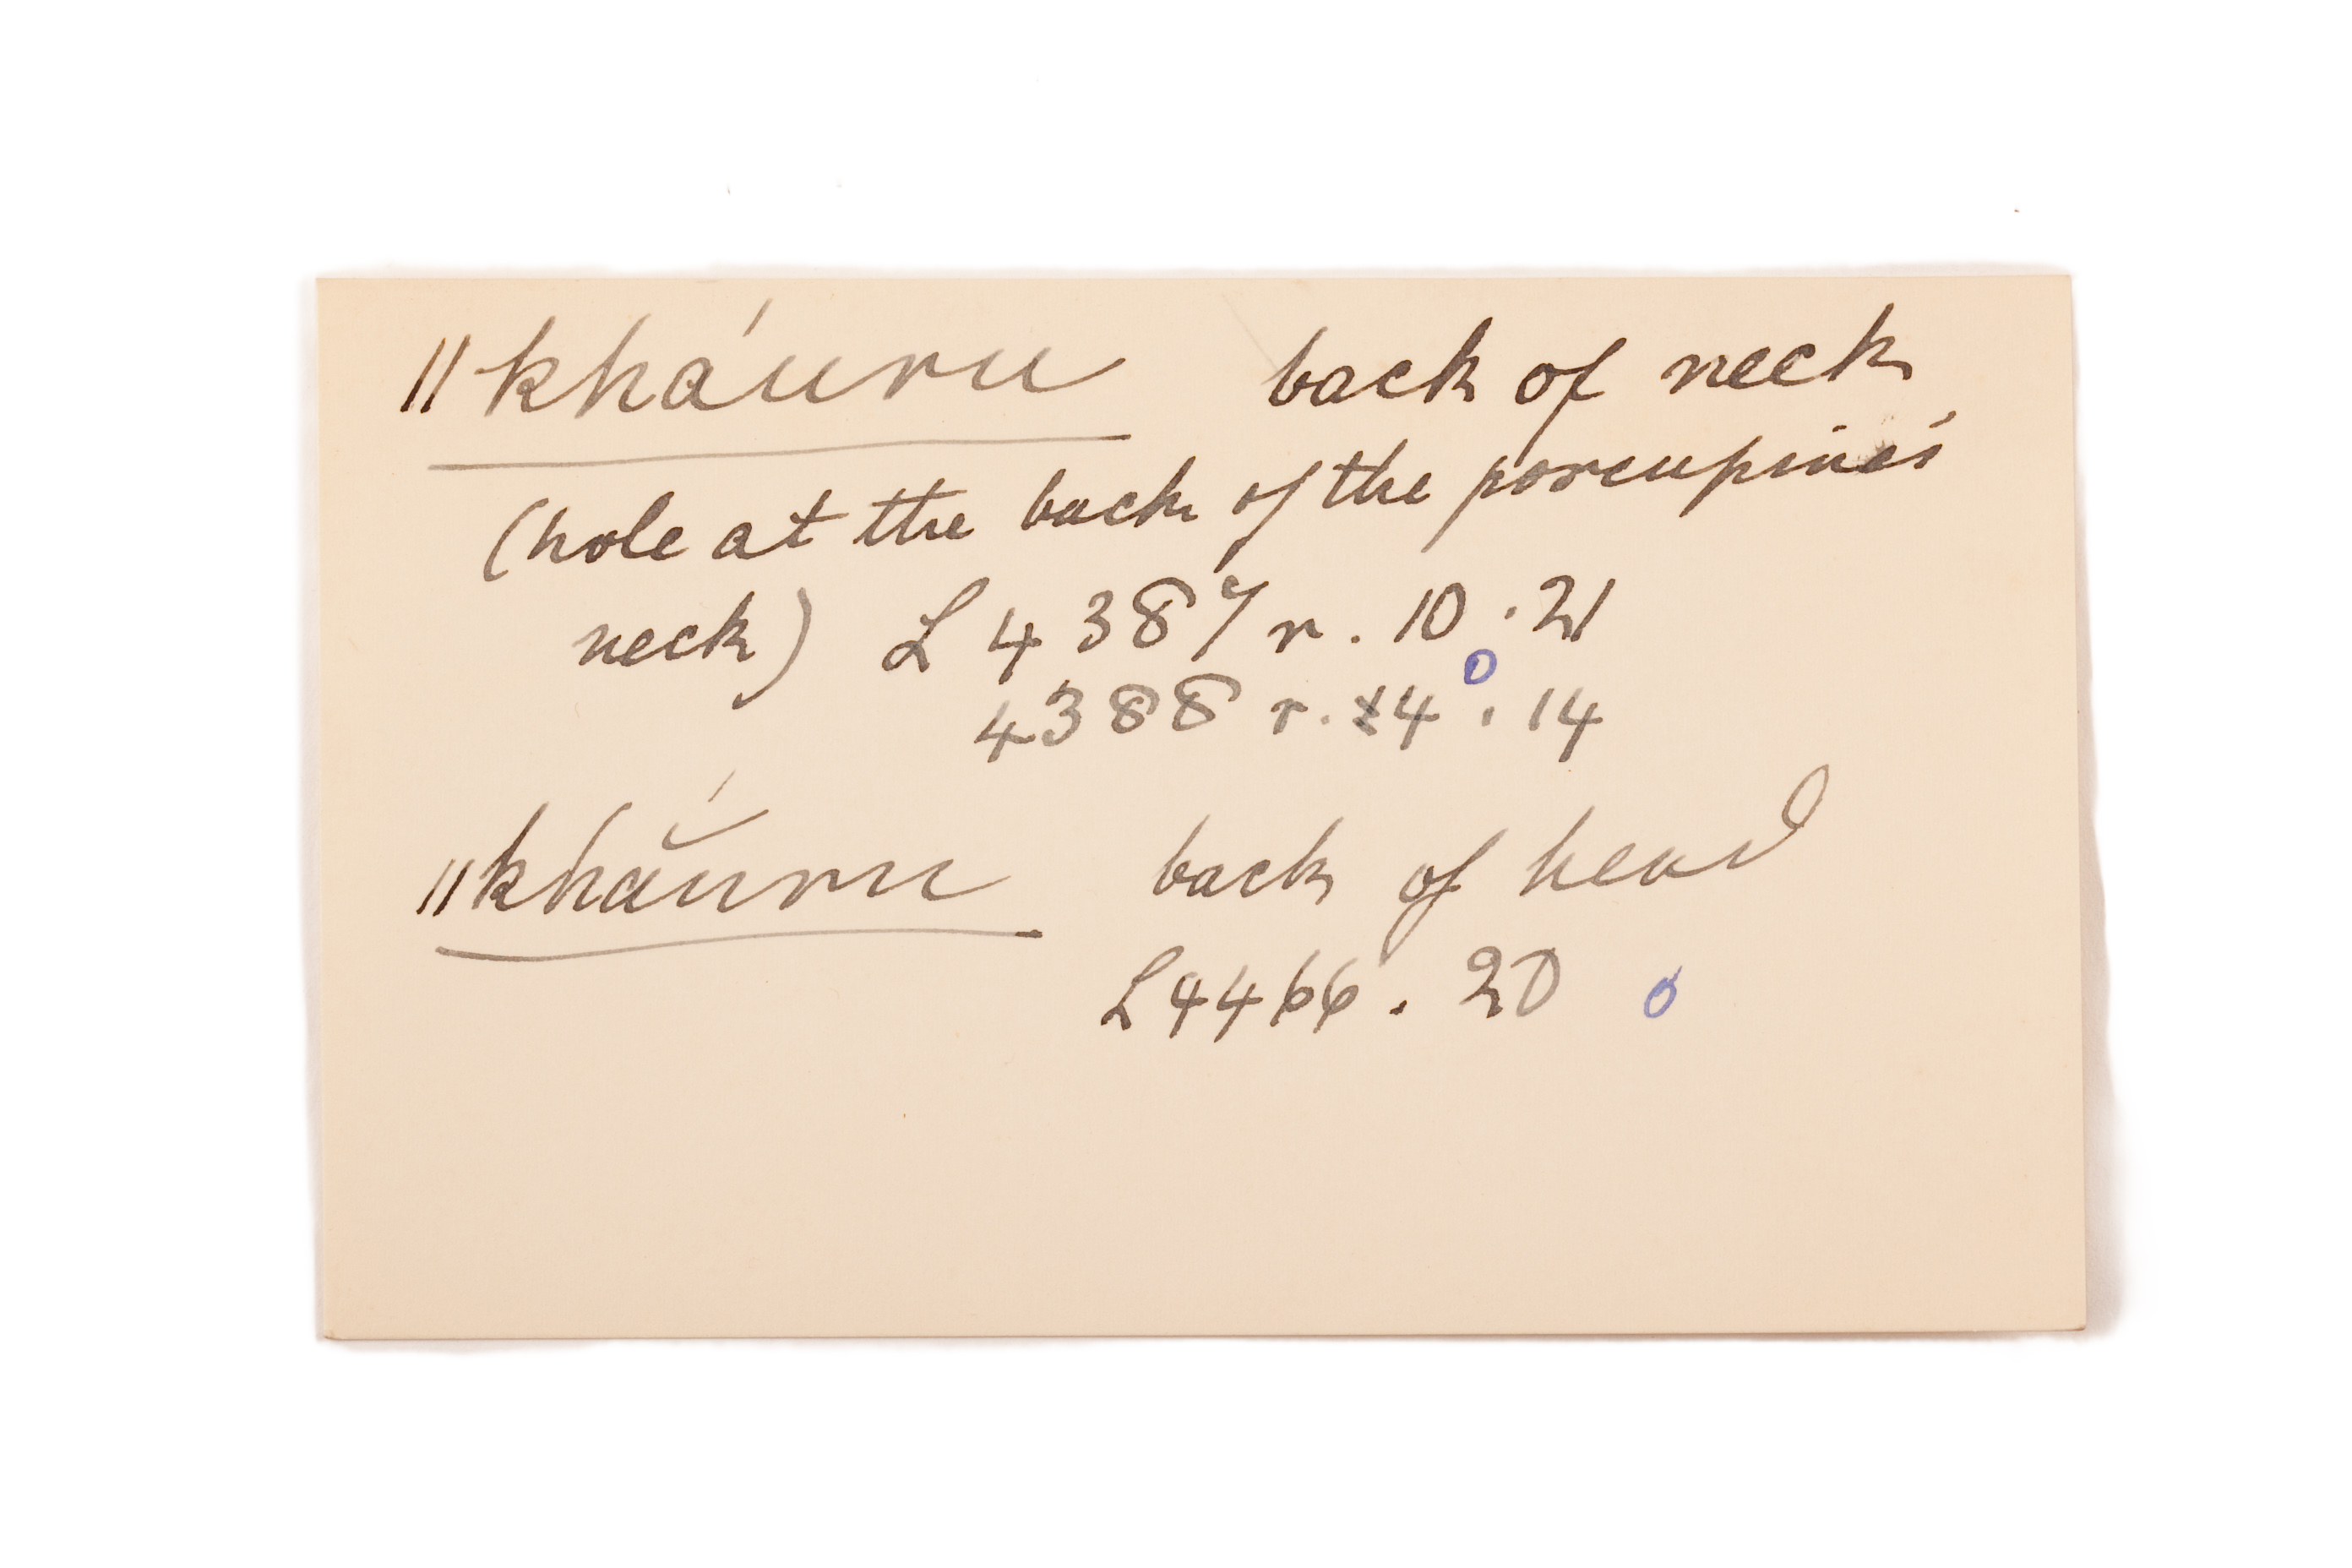 ǁkháuru back of neck
(hole at the back of the porcupine's
neck) L 4387 r. 10 . 21
4388 r. 4 . 14
ǁkhắuru back of head
L4466 . 20